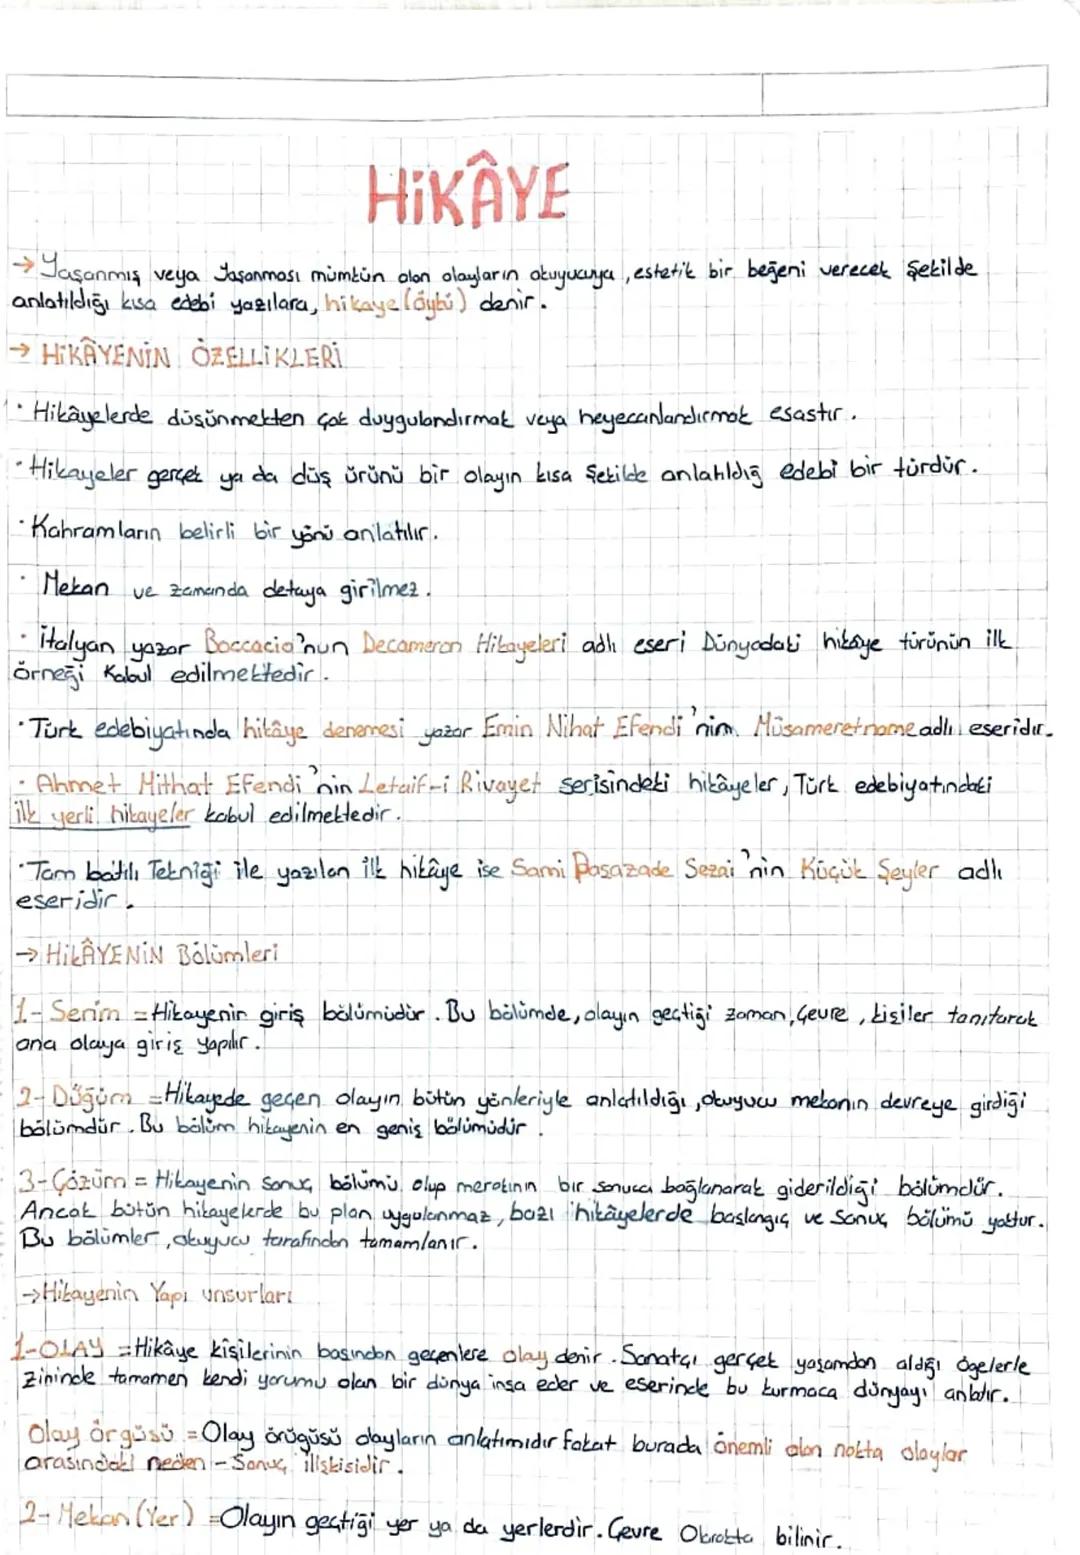 HİKÂYE
→ Yaşanmış veya Yaşanması mümkün olan olayların okuyucuya, estetik bir beğeni verecek şekilde
anlatıldığı kısa edebi yazılara, hikaye (öykü) denir.
→ HİKÂYENİN ÖZELLİKLERİ
· Hikâyelerde düşünmekten çok duygulandırmak veya heyecanlandırmak esastır.
· Hikayeler gerçek ya da düş ürünü bir olayın kısa şekilde anlatıldığ edebi bir türdür.
· Kahramların belirli bir yönü anlatılır.
· Mekan ve zamanda detaya girilmez.
· İtalyan yazar Boccacio'nun Decameron Hikayeleri adlı eseri Dünyadaki hikâye türünün ilk
örneği Kabul edilmektedir.
· Türk edebiyatında hikâye denemesi yazar Emin Nihat Efendi'nin Müsameretname adlı eseridir.
· Ahmet Mithat Efendi'nin Letaif-i Rivayet serisindeki hikâyeler, Türk edebiyatındaki
ilk yerli hikayeler kabul edilmektedir.
· Tam batılı Tekniği ile yazılan ilk hikâye ise Sami Paşazade Sezai'nin Küçük Şeyler adlı
eseridir.
→ HİKÂYENİN Bölümleri
1- Serim = Hikayenin giriş bölümüdür. Bu bölümde, olayın geçtiği zaman, Çevre, kişiler tanıtarak
ana olaya giriş yapılır.
2- Düğüm = Hikayede geçen olayın bütün yönleriyle anlatıldığı, okuyucu mekanın devreye girdiği
bölümdür. Bu bölüm hikayenin en geniş bölümüdür.
3- Çözüm = Hikayenin sonuç bölümü olup merakının bir sonuca bağlanarak giderildiği bölümdür.
Ancak bütün hikayelerde bu plan uygulanmaz, bazı hikâyelerde başlangıç ve Sonuç bölümü yoktur.
Bu bölümler, okuyucu tarafından tamamlanır.
→ Hikayenin Yapı unsurları
1- OLAY = Hikâye kişilerinin başından geçenlere olay denir. Sanatçı gerçek yaşamdan aldığı ögelerle
zihinde tamamen kendi yorumu olan bir dünya inşa eder ve eserinde bu kurmaca dünyayı anlatır.
Olay örgüsü = Olay örügüsü olayların anlatımıdır fakat burada önemli olan nokta olaylar
arasındaki neden - Sonuç ilişkisidir.
2- Mekan (Yer) = Olayın geçtiği yer ya da yerlerdir. Çevre Olarakta bilinir.